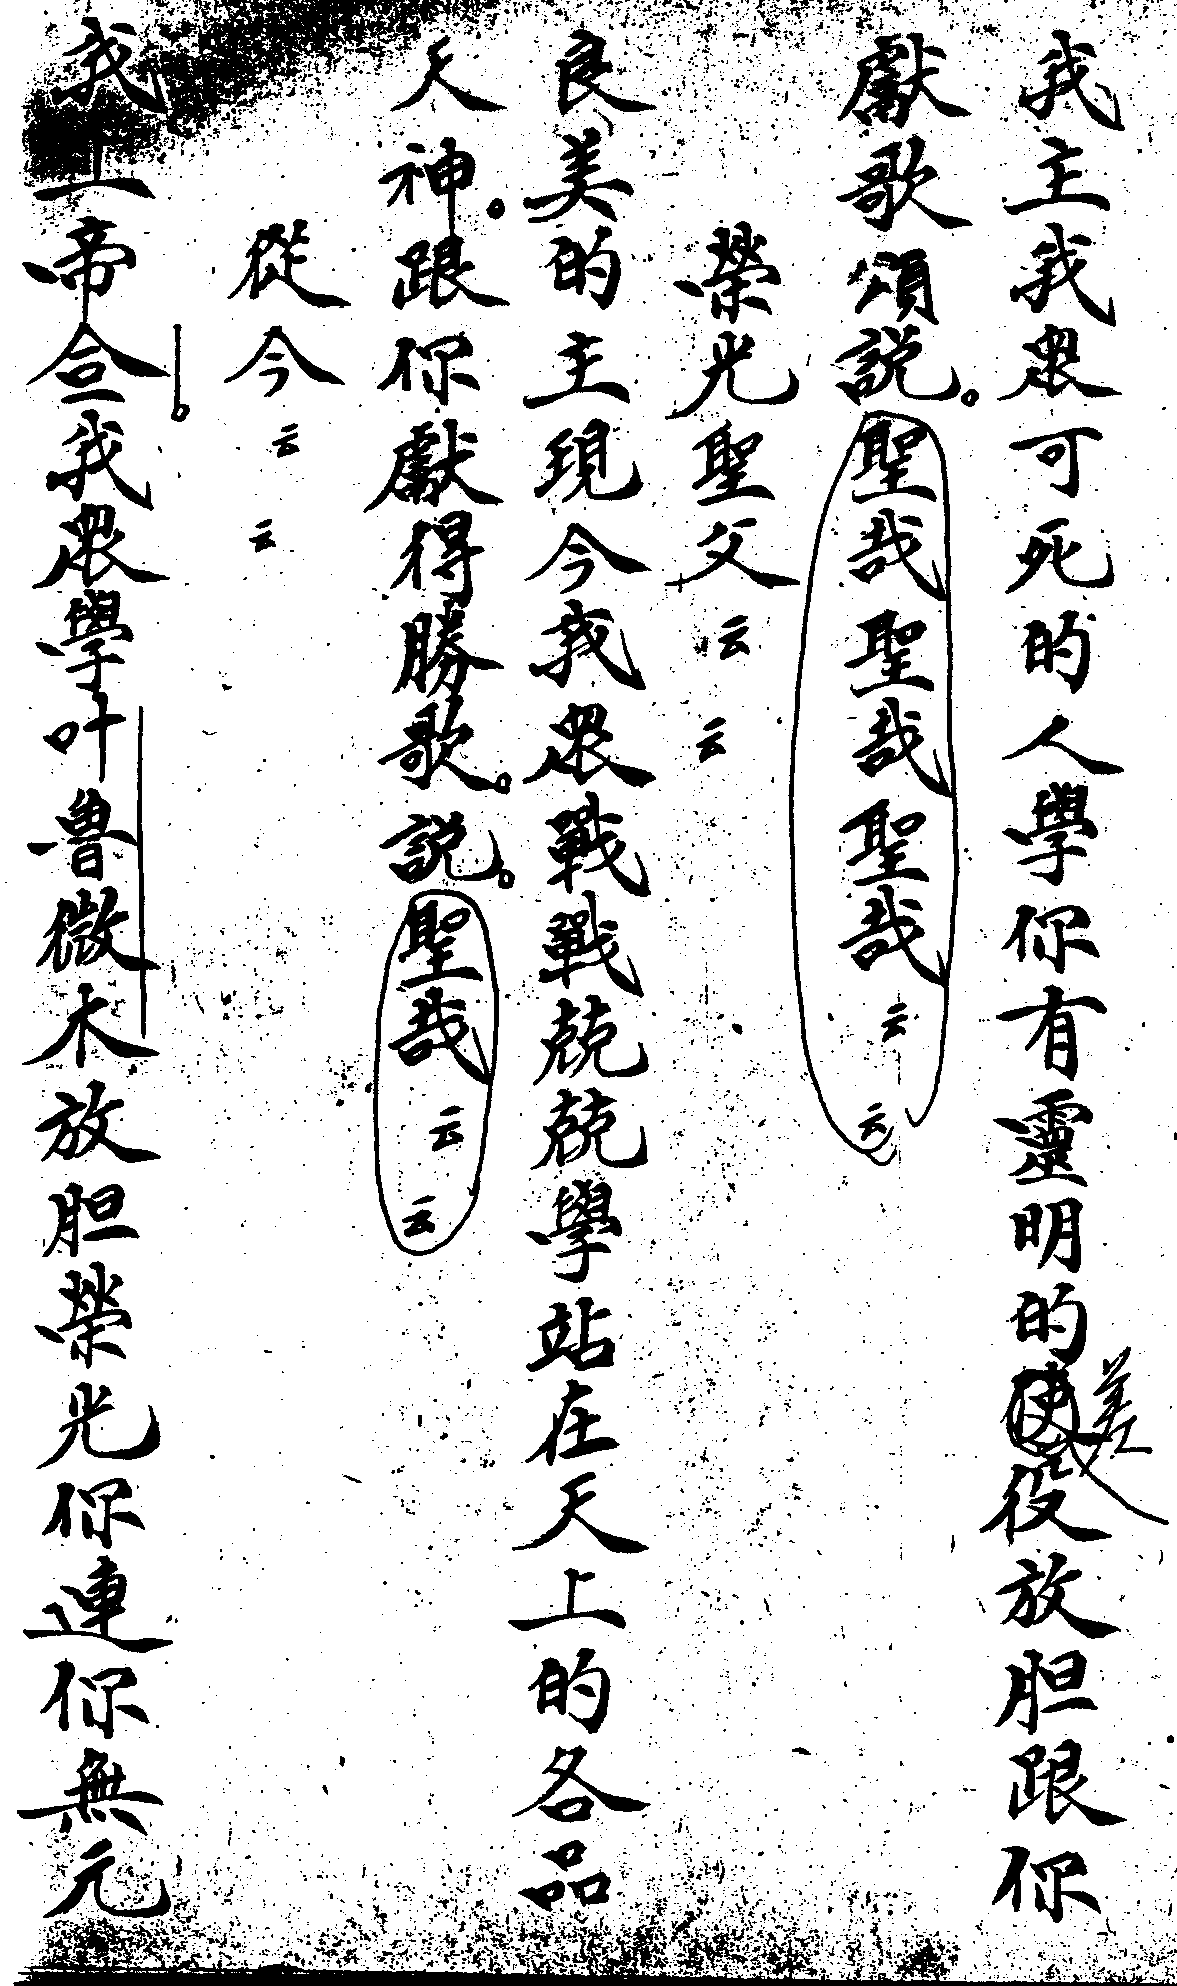 我主我眾可死的人學你有靈明的差役放胆跟你
獻歌頌説。聖哉聖哉聖哉云云
榮光聖父云云
良美的主現今我眾戰戰兢兢學站在天上的各品
天神。跟你獻得勝歌。説。聖哉云云
從今云云
我上帝。我眾學叶魯微木放胆榮光你連你無元